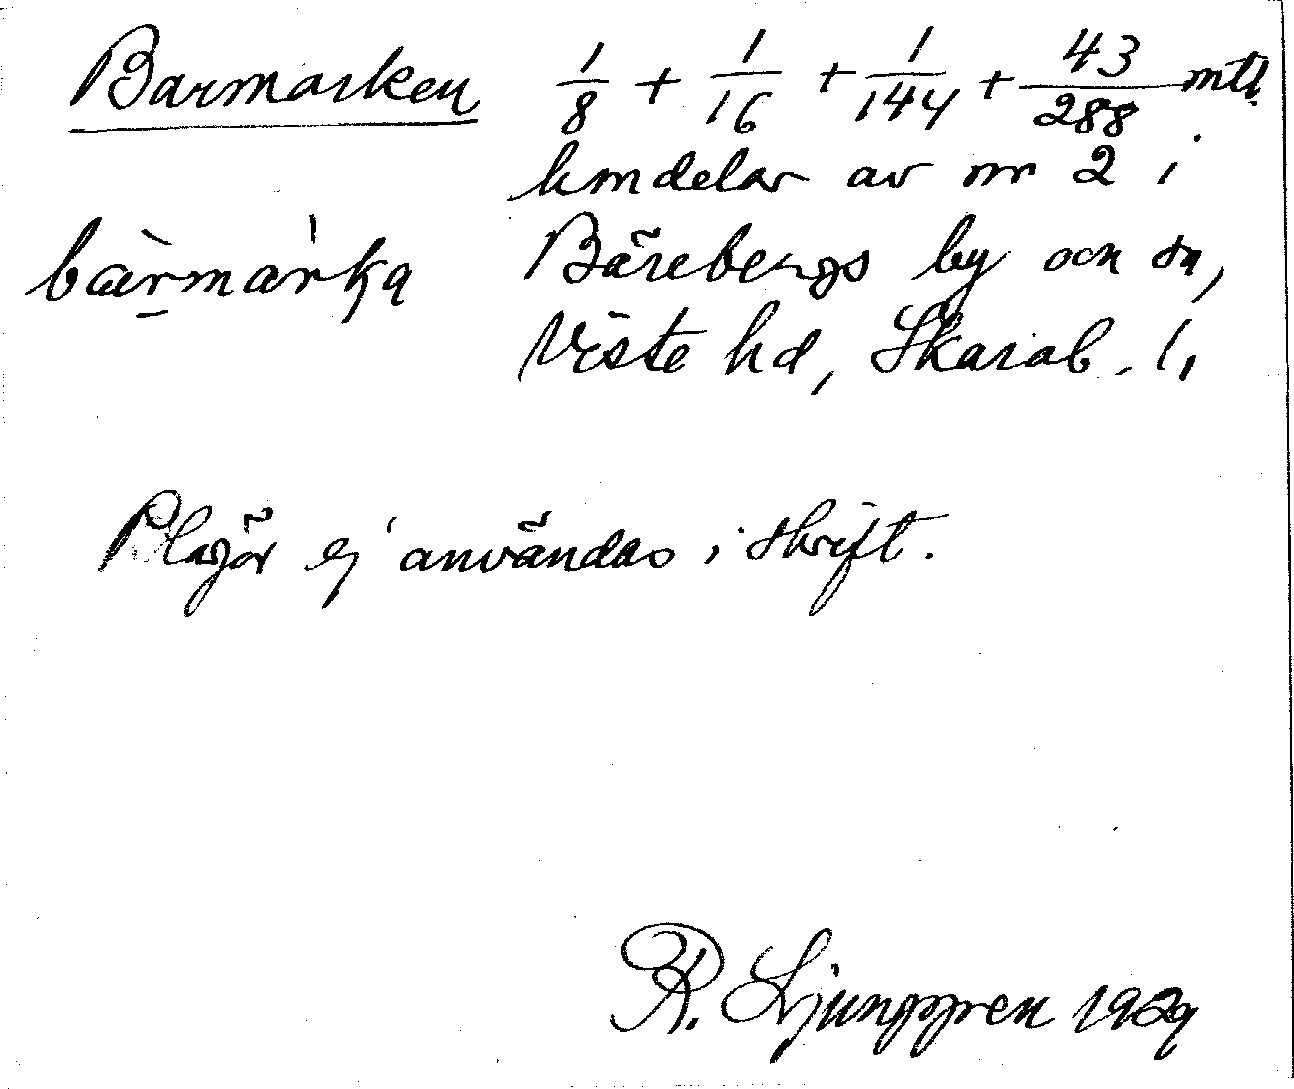 Barmarken 1/8 + 1/16 + 1/144 + 43/288 mtl
hmdelar av nr 2 i
bàrmárka Bärebergs by och sn,
Viste hd, Skarab. l.
Plägär ej användas i skrift.
R. Ljunggren 1929